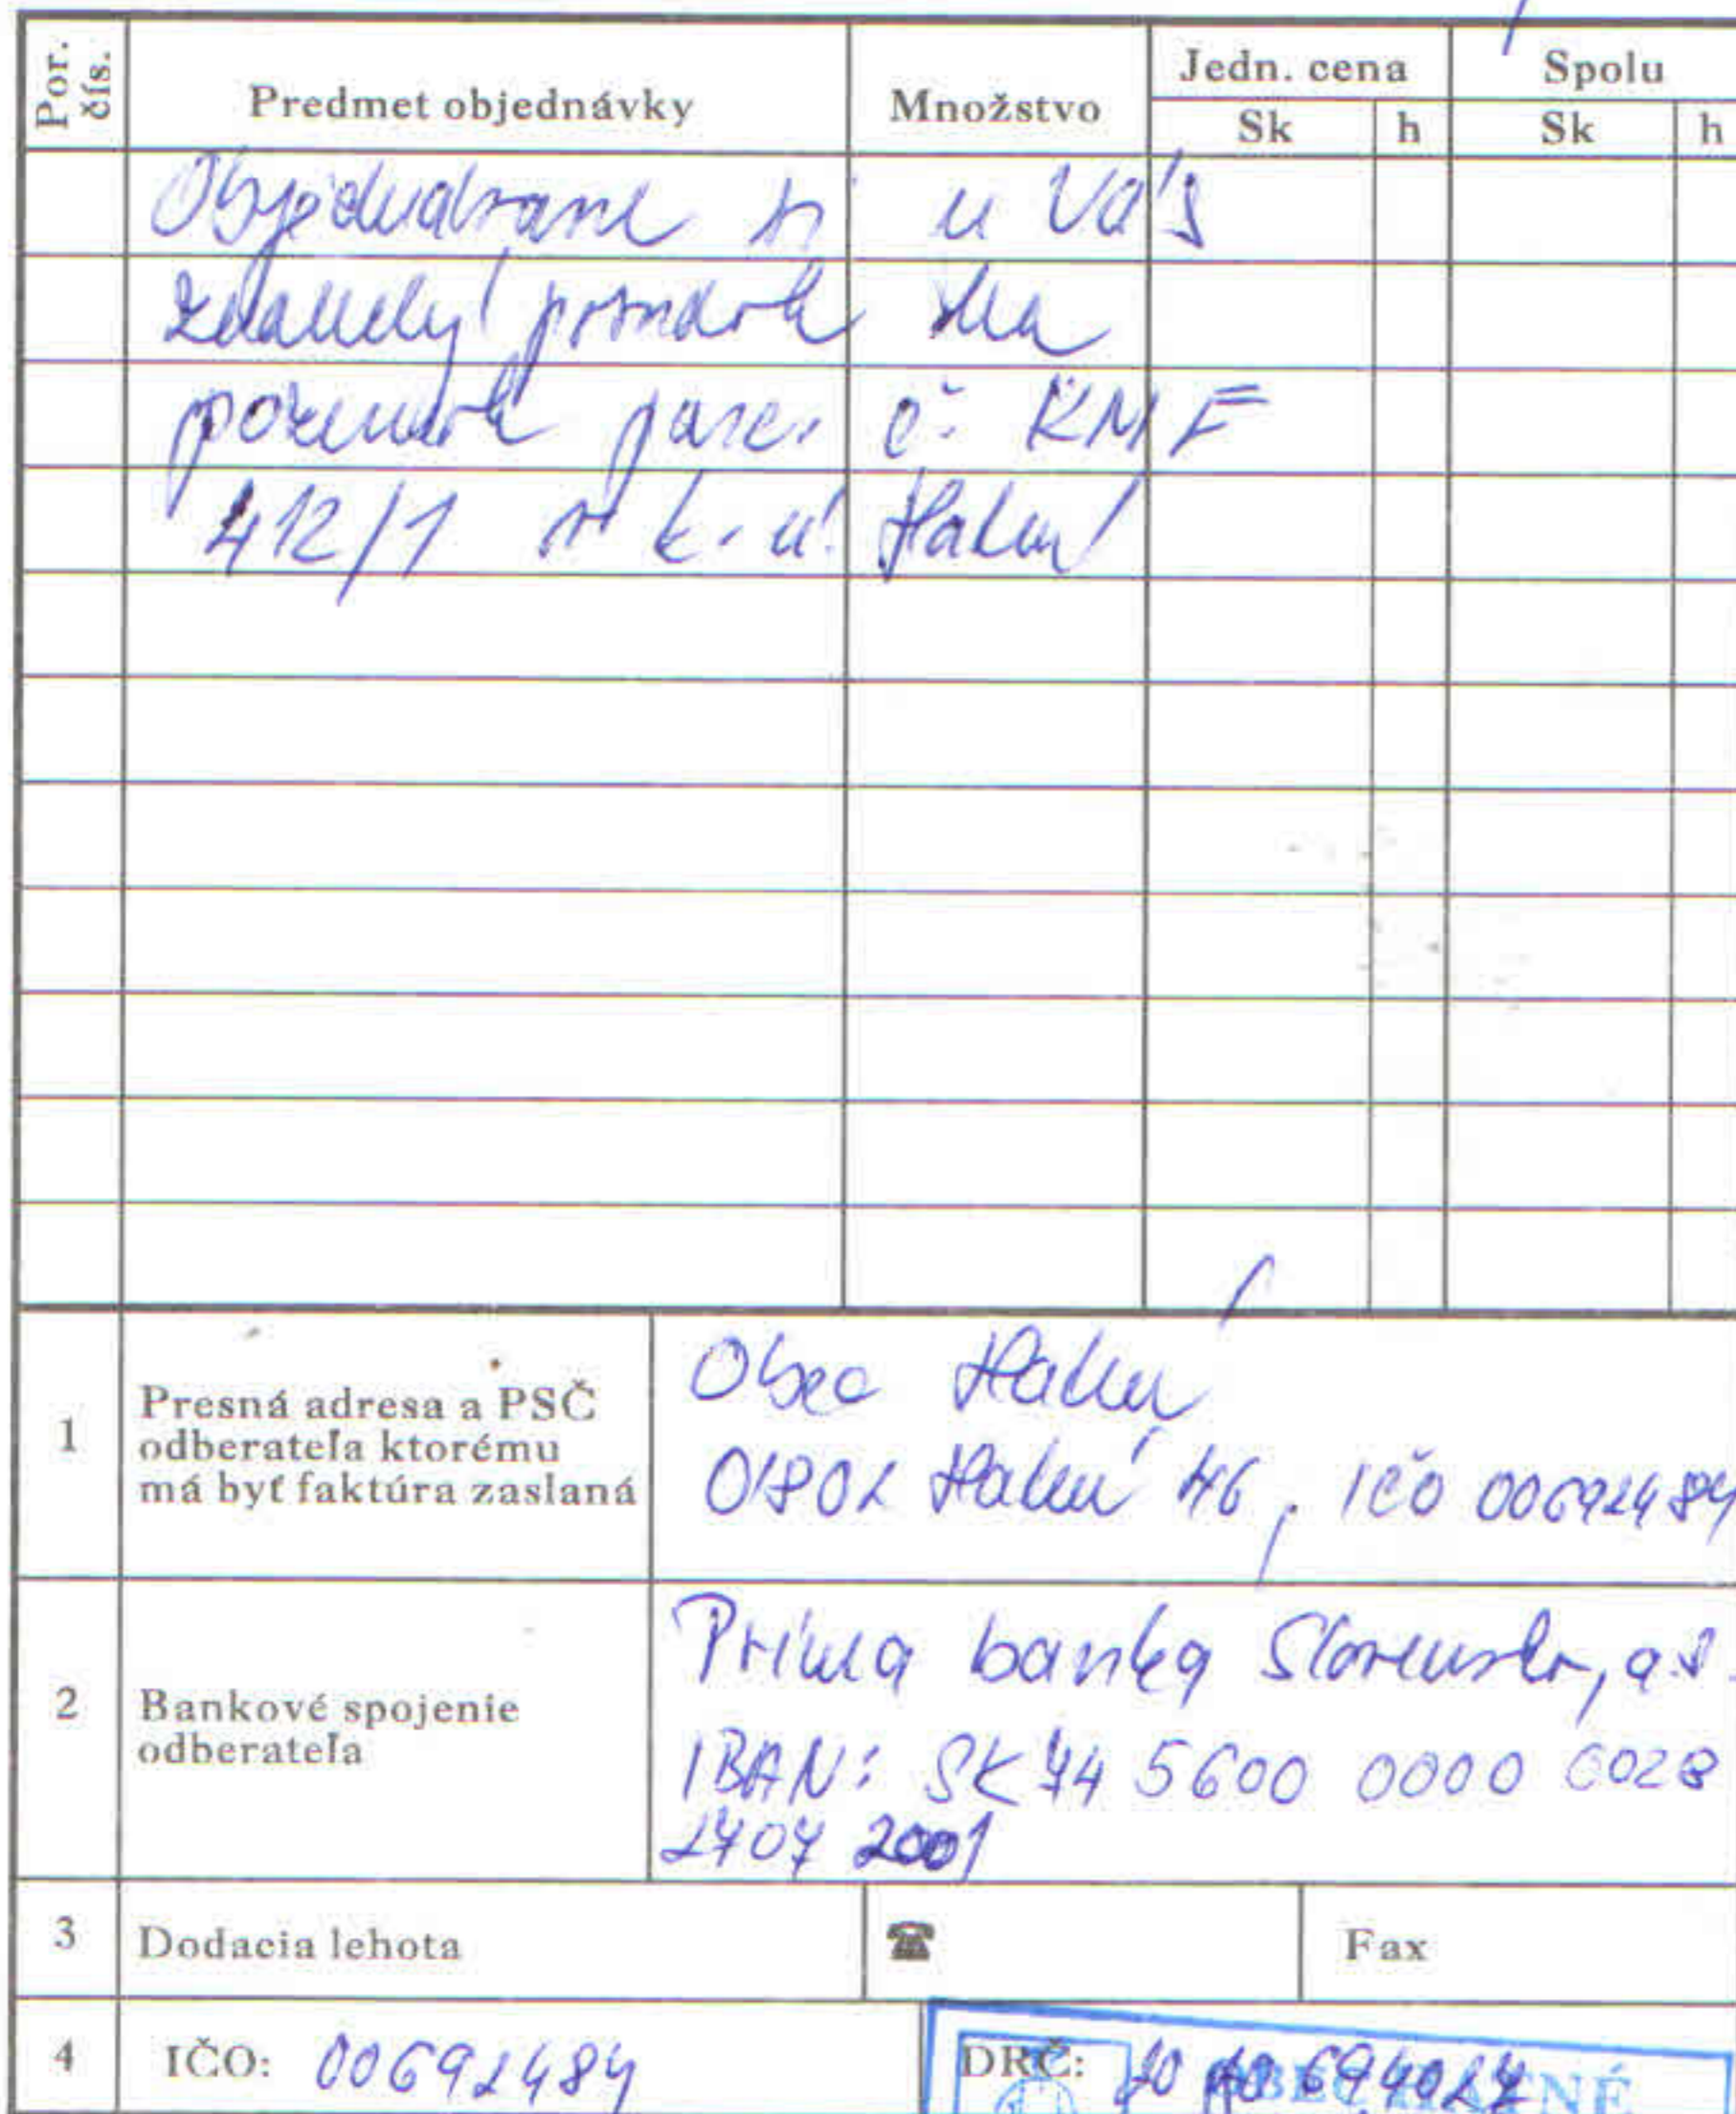 Por. čís. Predmet objednávky Množstvo Jedn. cena Spolu
Sk h Sk h
Objednávame si u Vás
znalecký posudok na
pozemok parc. č. KNE
412/1 v k. ú.
1 Presná adresa a PSČ odberateľa ktorému má byť faktúra zaslaná
Obec Hatné
01802 Hatné 46, IČO 00692484
2 Bankové spojenie odberateľa
Prima banka Slovensko, a.s.
IBAN: SK 5600 0000 0028
2001
3 Dodacia lehota ☎ Fax
4 IČO: 00692484 DRČ:
OBEC HATNÉ